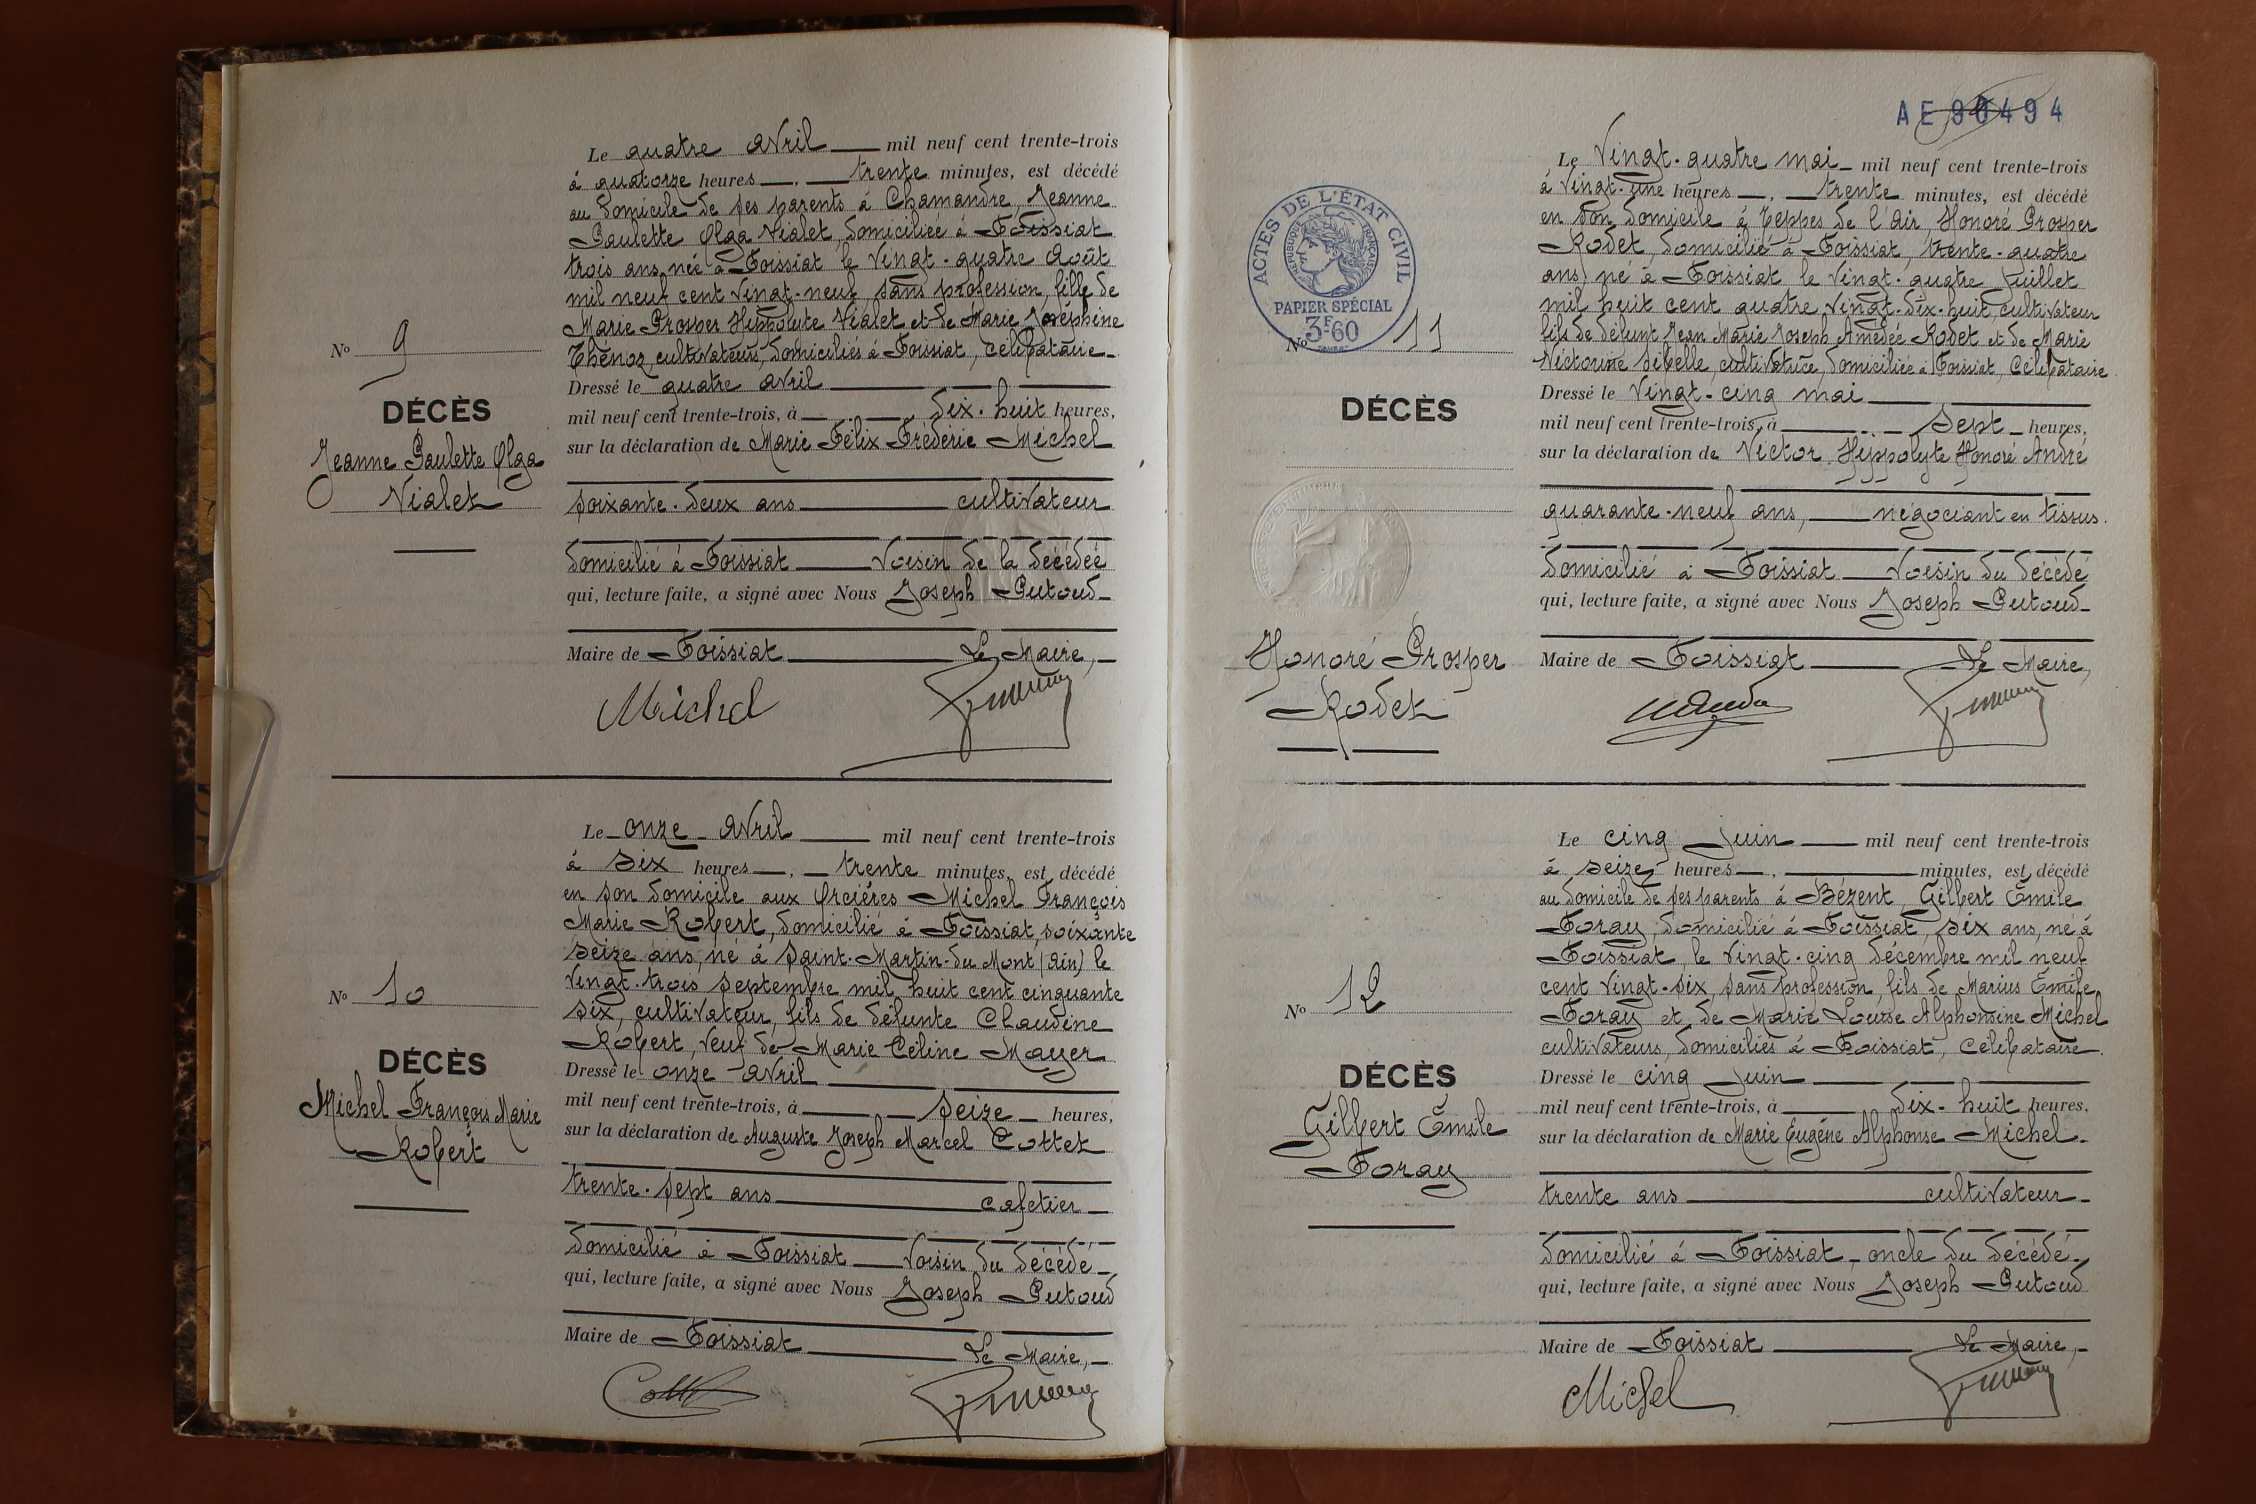 Le quatre avril mil neuf cent trente-trois
à quatorze heures trente minutes, est décédé
au domicile de ses parents à Chamandre, Jeanne
Paulette Olga Vialet, domiciliée à Foissiat
trois ans, née à Foissiat le vingt-quatre Août
mil neuf cent vingt-neuf, sans profession, fille de
Marie Prosper Hippolyte Vialet et de Marie Joséphine
Thénoz, cultivateurs, domiciliés à Foissiat, célibataire
No 9
DÉCÈS
Jeanne Paulette Olga
Vialet
Dressé le quatre avril
mil neuf cent trente-trois, à dix-huit heures,
sur la déclaration de Marie Félix Frédéric Michel
soixante-deux ans cultivateur
domicilié à Foissiat voisin de la décédée
qui, lecture faite, a signé avec Nous Joseph Putoud
Maire de Foissiat Le Maire,
Michel
Le onze avril mil neuf cent trente-trois
à six heures trente minutes, est décédé
en son domicile aux Orcières Michel François
Marie Robert, domicilié à Foissiat, soixante
seize ans, né à Saint-Martin-du Mont (Ain) le
vingt-trois septembre mil huit cent cinquante
six, cultivateur, fils de défunte Claudine
Robert, veuf de Marie Céline Mayer
No 10
DÉCÈS
Michel François Marie
Robert
Dressé le onze avril
mil neuf cent trente-trois, à seize heures,
sur la déclaration de Auguste Joseph Marcel Cottet
trente-sept ans cafetier
domicilié à Foissiat voisin du décédé
qui, lecture faite, a signé avec Nous Joseph Putoud
Maire de Foissiat Le Maire,
AE 90494
ACTES DE L'ÉTAT CIVIL
RÉPUBLIQUE FRANÇAISE
PAPIER SPÉCIAL
3F60
Le vingt-quatre mai mil neuf cent trente-trois
à vingt-une heures trente minutes, est décédé
en son domicile à Teppes de l'air, Honoré Prosper
Rodet, domicilié à Foissiat, trente-quatre
ans, né à Foissiat le vingt-quatre Juillet
mil huit cent quatre vingt-dix-huit, cultivateur
fils de défunt Jean Marie Joseph Amédée Rodet et de Marie
Victorine Sibelle, cultivatrice, domiciliée à Foissiat, célibataire
No 11
DÉCÈS
Honoré Prosper
Rodet
Dressé le vingt-cinq mai
mil neuf cent trente-trois, à sept heures,
sur la déclaration de Victor Hyppolyte Honoré André
quarante-neuf ans, négociant en tissus.
domicilié à Foissiat voisin du décédé
qui, lecture faite, a signé avec Nous Joseph Putoud
Maire de Foissiat Le Maire,
Le cinq Juin mil neuf cent trente-trois
à seize heures minutes, est décédé
au domicile de ses parents à Bézent, Gilbert Émile
Foray, domicilié à Foissiat, six ans, né à
Foissiat, le vingt-cinq décembre mil neuf
cent vingt-six, sans profession, fils de Marius Émile
Foray et de Marie Louise Alphonsine Michel
cultivateurs, domiciliés à Foissiat, célibataire.
No 12
DÉCÈS
Gilbert Émile
Foray
Dressé le cinq Juin
mil neuf cent trente-trois, à dix-huit heures,
sur la déclaration de Marie Eugène Alphonse Michel
trente ans cultivateur
domicilié à Foissiat oncle du décédé
qui, lecture faite, a signé avec Nous Joseph Putoud
Maire de Foissiat Le Maire,
Michel